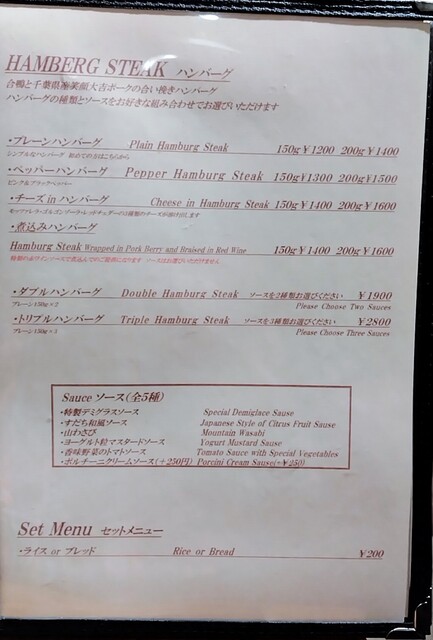 HAMBERG STEAK ハンバーグ
合鴨と千葉県産笑顔大吉ポークの合い挽きハンバーグ
ハンバーグの種類とソースをお好きな組み合わせでお選びいただけます
・プレーンハンバーグ Plain Hamburg Steak 150g￥1200 200g￥1400
シンプルなハンバーグ 初めての方はこちらから
・ペッパーハンバーグ Pepper Hamburg Steak 150g¥1300 200g¥1500
ピンク＆ブラックペッパー
・チーズ in ハンバーグ Cheese in Hamburg Steak 150g￥1400 200g￥1600
モッツァレラ・ゴルゴンゾーラ・レッドチェダーの3種類のチーズが溶け出します
・煮込みハンバーグ
Hamburg Steak Wrapped in Pork Berry and Braised in Red Wine 150g￥1400 200g￥1600
特製の赤ワインソースで煮込んでのご提供になります ソースはお選びいただけません
・ダブルハンバーグ Double Hamburg Steak ソースを2種類お選びください ￥1900
プレーン150g×2 Please Choose Two Sauces
・トリプルハンバーグ Triple Hamburg Steak ソースを3種類お選びください ￥2800
プレーン150g×3 Please Choose Three Sauces
Sauce ソース(全5種)
・特製デミグラスソース Special Demiglace Sause
・すだち和風ソース Japanese Style of Citrus Fruit Sause
・山わさび Mountain Wasabi
・ヨーグルト粒マスタードソース Yogurt Mustard Sause
・香味野菜のトマトソース Tomato Sauce with Special Vegetables
・ポルチーニクリームソース(＋250円) Porcini Cream Sause(+￥250)
Set Menu セットメニュー
・ライス or ブレッド Rice or Bread ￥200